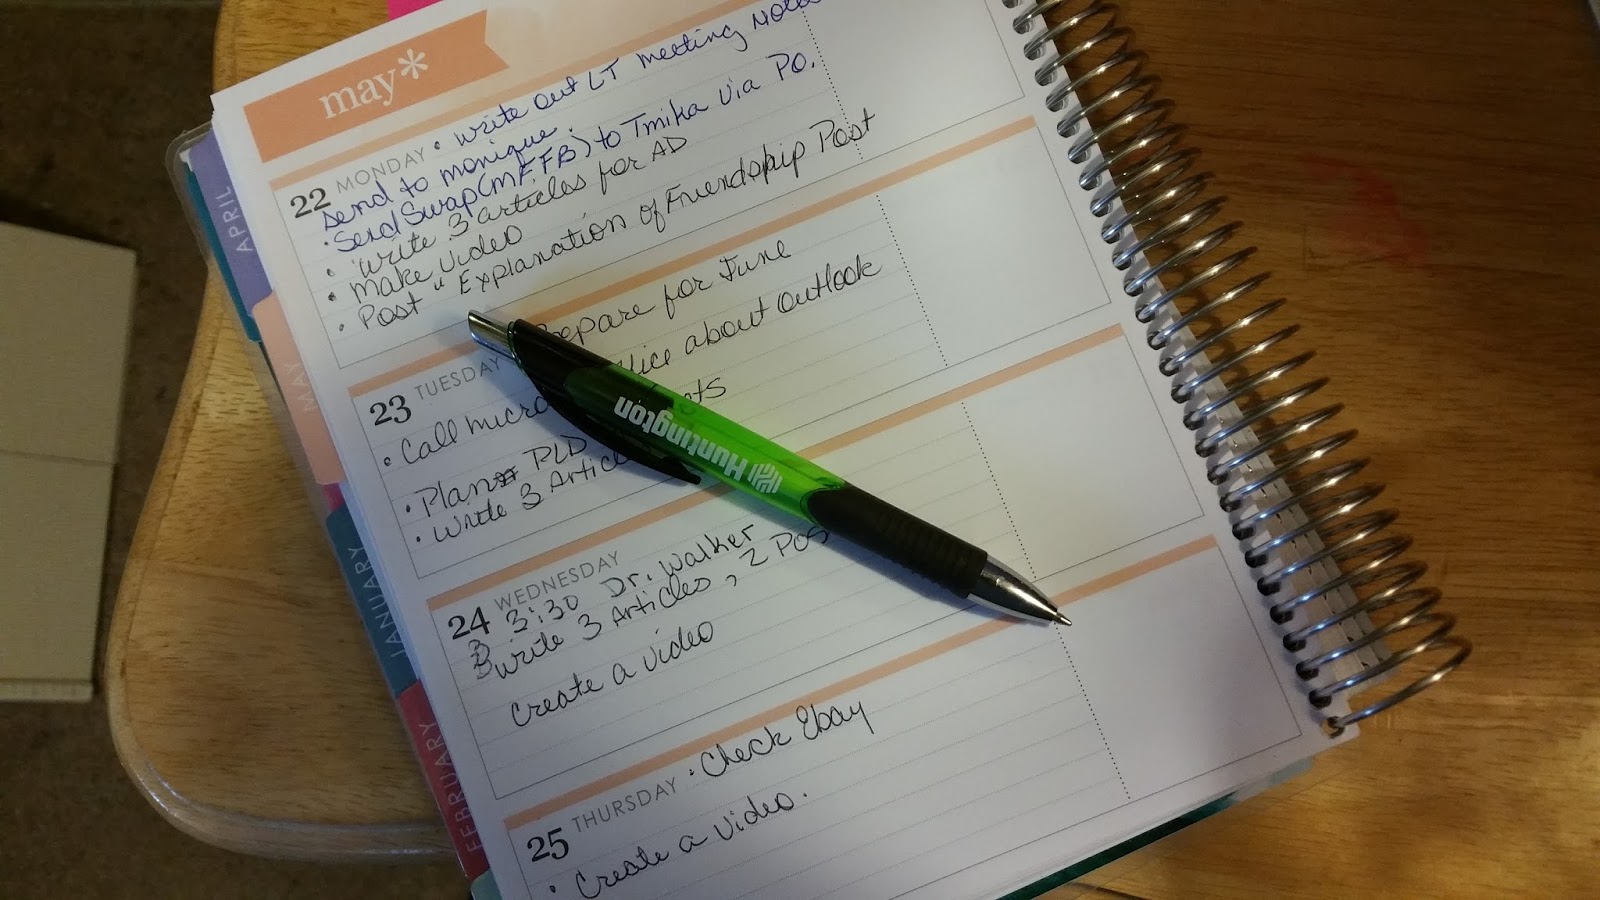 may*
22 MONDAY • Write out LT meeting Notes
Send to monique.
• Send Swap (MFFB) to Tmika Via PO.
• Write 3 articles for AD
• Make Video
• Post " Explanation of Friendship Post
23 TUESDAY Prepare for June
• Call about outlook
• Plan PLD
• Write 3
24 WEDNESDAY
3:30 Dr. Walker
Write 3 Articles, 2
Create a Video
25 THURSDAY • Check Ebay
• Create a Video.
APRIL
MAY
JANUARY
FEBRUARY
Huntington